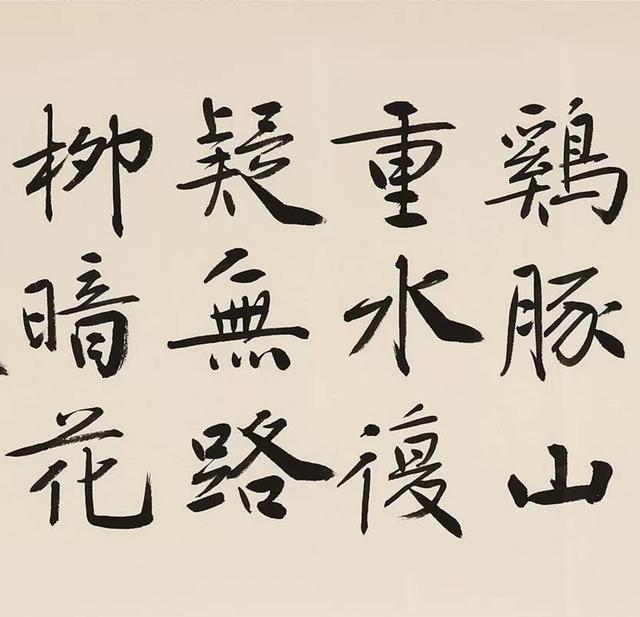 鷄豚山
重水復
疑無路
柳暗花